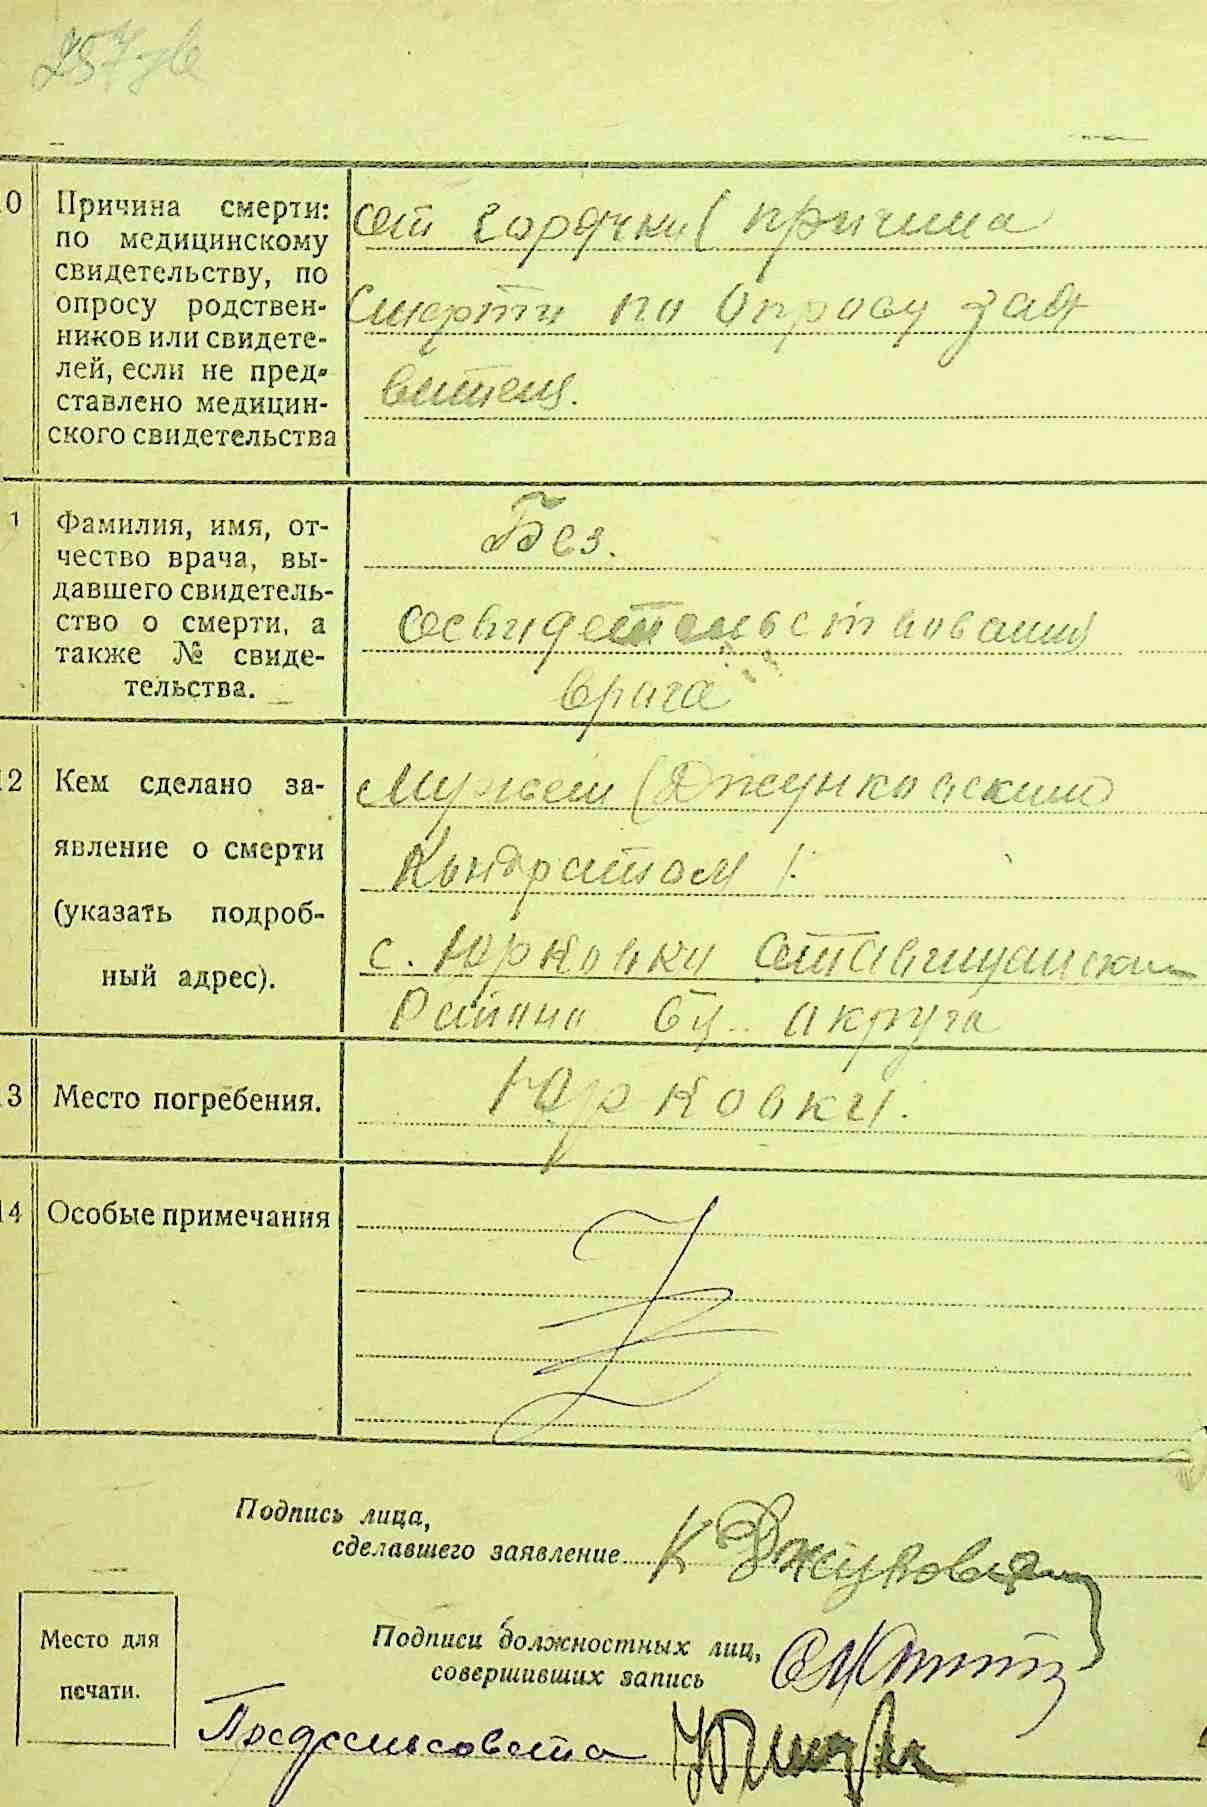 257
10 Причина смерти:
по медицинскому
свидетельству, по
опросу родствен-
ников или свидете-
лей, если не пред-
ставлено медицин-
ского свидетельства
от горячки (причина
смерти по опросу зая
вителя.
11 Фамилия, имя, от-
чество врача, вы-
давшего свидетель-
ство о смерти, а
также № свиде-
тельства.
Без.
освидетельствования
врача
12 Кем сделано за-
явление о смерти
(указать подроб-
ный адрес).
Мужем (Джунковским
Кондратом
с. Юрковки Ставищанск
района округа
13 Место погребения.
Юрковки.
14 Особые примечания
Подпись лица,
сделавшего заявление
К Джунков
Подписи должностных лиц,
совершивших запись
Место для
печати.
Предсельсовета